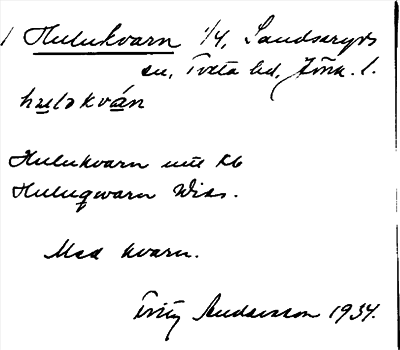 1 Hulukvarn 1/4, Sandseryds
sn, Tveta hd, Jönk. l.
hu̲lə kvá̲n
Hulukvarn utt kb
Huluqwarn Wiss.
Med kvarn.
Fritz Andersson 1934.